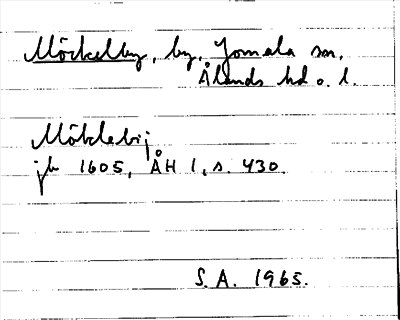 Möckelby, by, Jomala sn,
Ålands hd o. l.
Möklebij
jb 1605, ÅH 1, s. 430.
S.A. 1965.